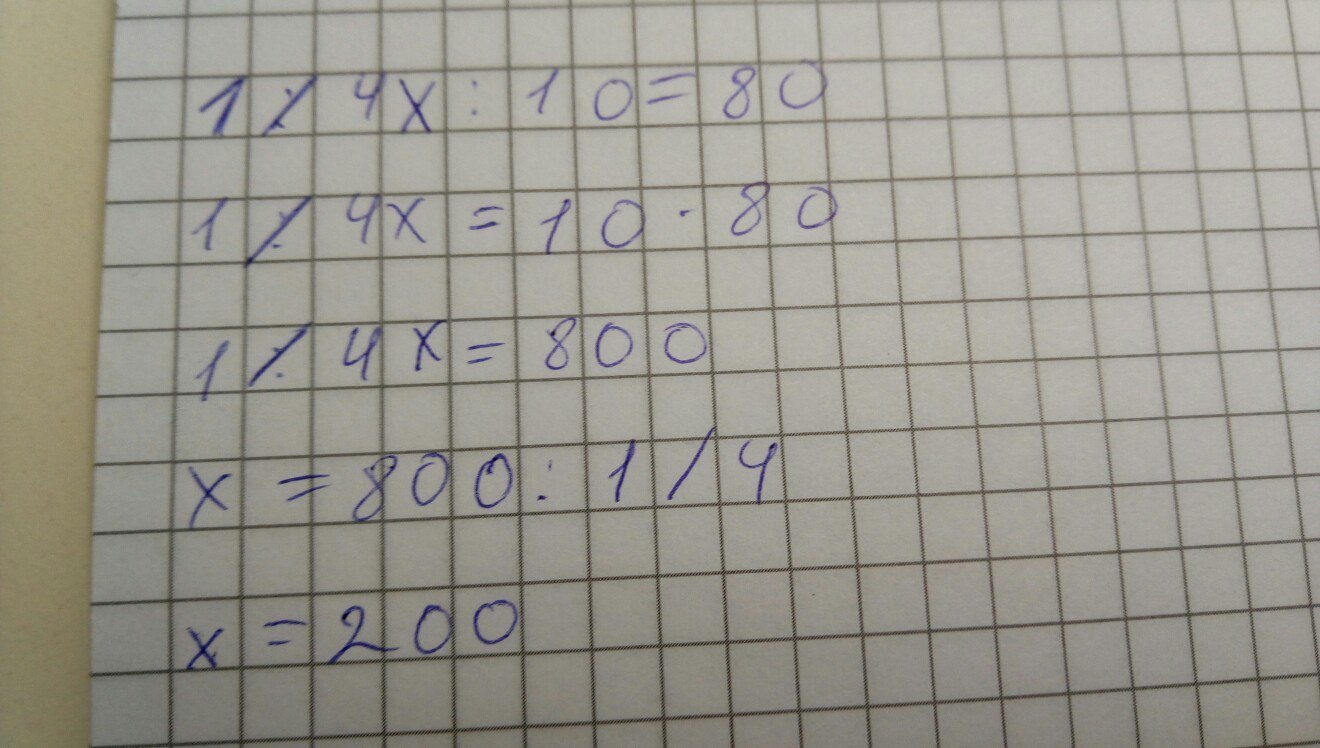 1/4x:10=80
1/4x=10·80
1/4x=800
x=800:1/4
x=200